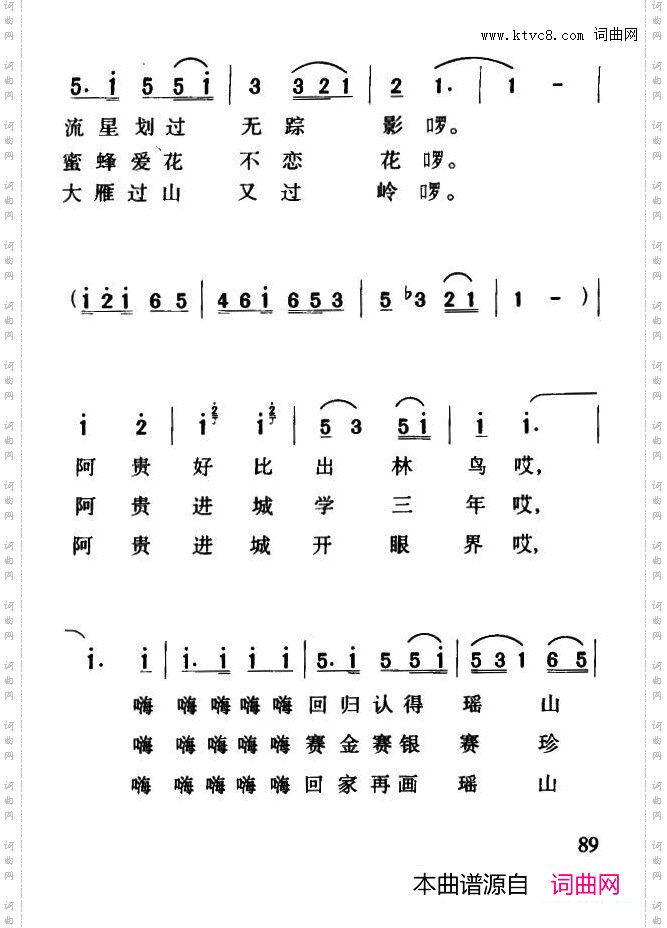 www.ktvc8.com 词曲网
5. i 5 5 i | 3 3 2 1 | 2 1. | 1 - |
流星划过 无踪 影啰。
蜜蜂爱花 不恋 花啰。
大雁过山 又过 岭啰。
( i 2 i 6 5 | 4 6 i 6 5 3 | 5 ♭3 2 1 | 1 - ) |
i 2 | i 2 i 2 | 5 3 5 i | i i. |
阿贵好比出林鸟哎,
阿贵进城学三年哎,
阿贵进城开眼界哎,
i. i | i. i i i | 5. i 5 5 i | 5 3 1 6 5 |
嗨 嗨嗨嗨嗨 回归认得 瑶 山
嗨 嗨嗨嗨嗨 赛金赛银 赛 珍
嗨 嗨嗨嗨嗨 回家再画 瑶 山
89
本曲谱源自 词曲网